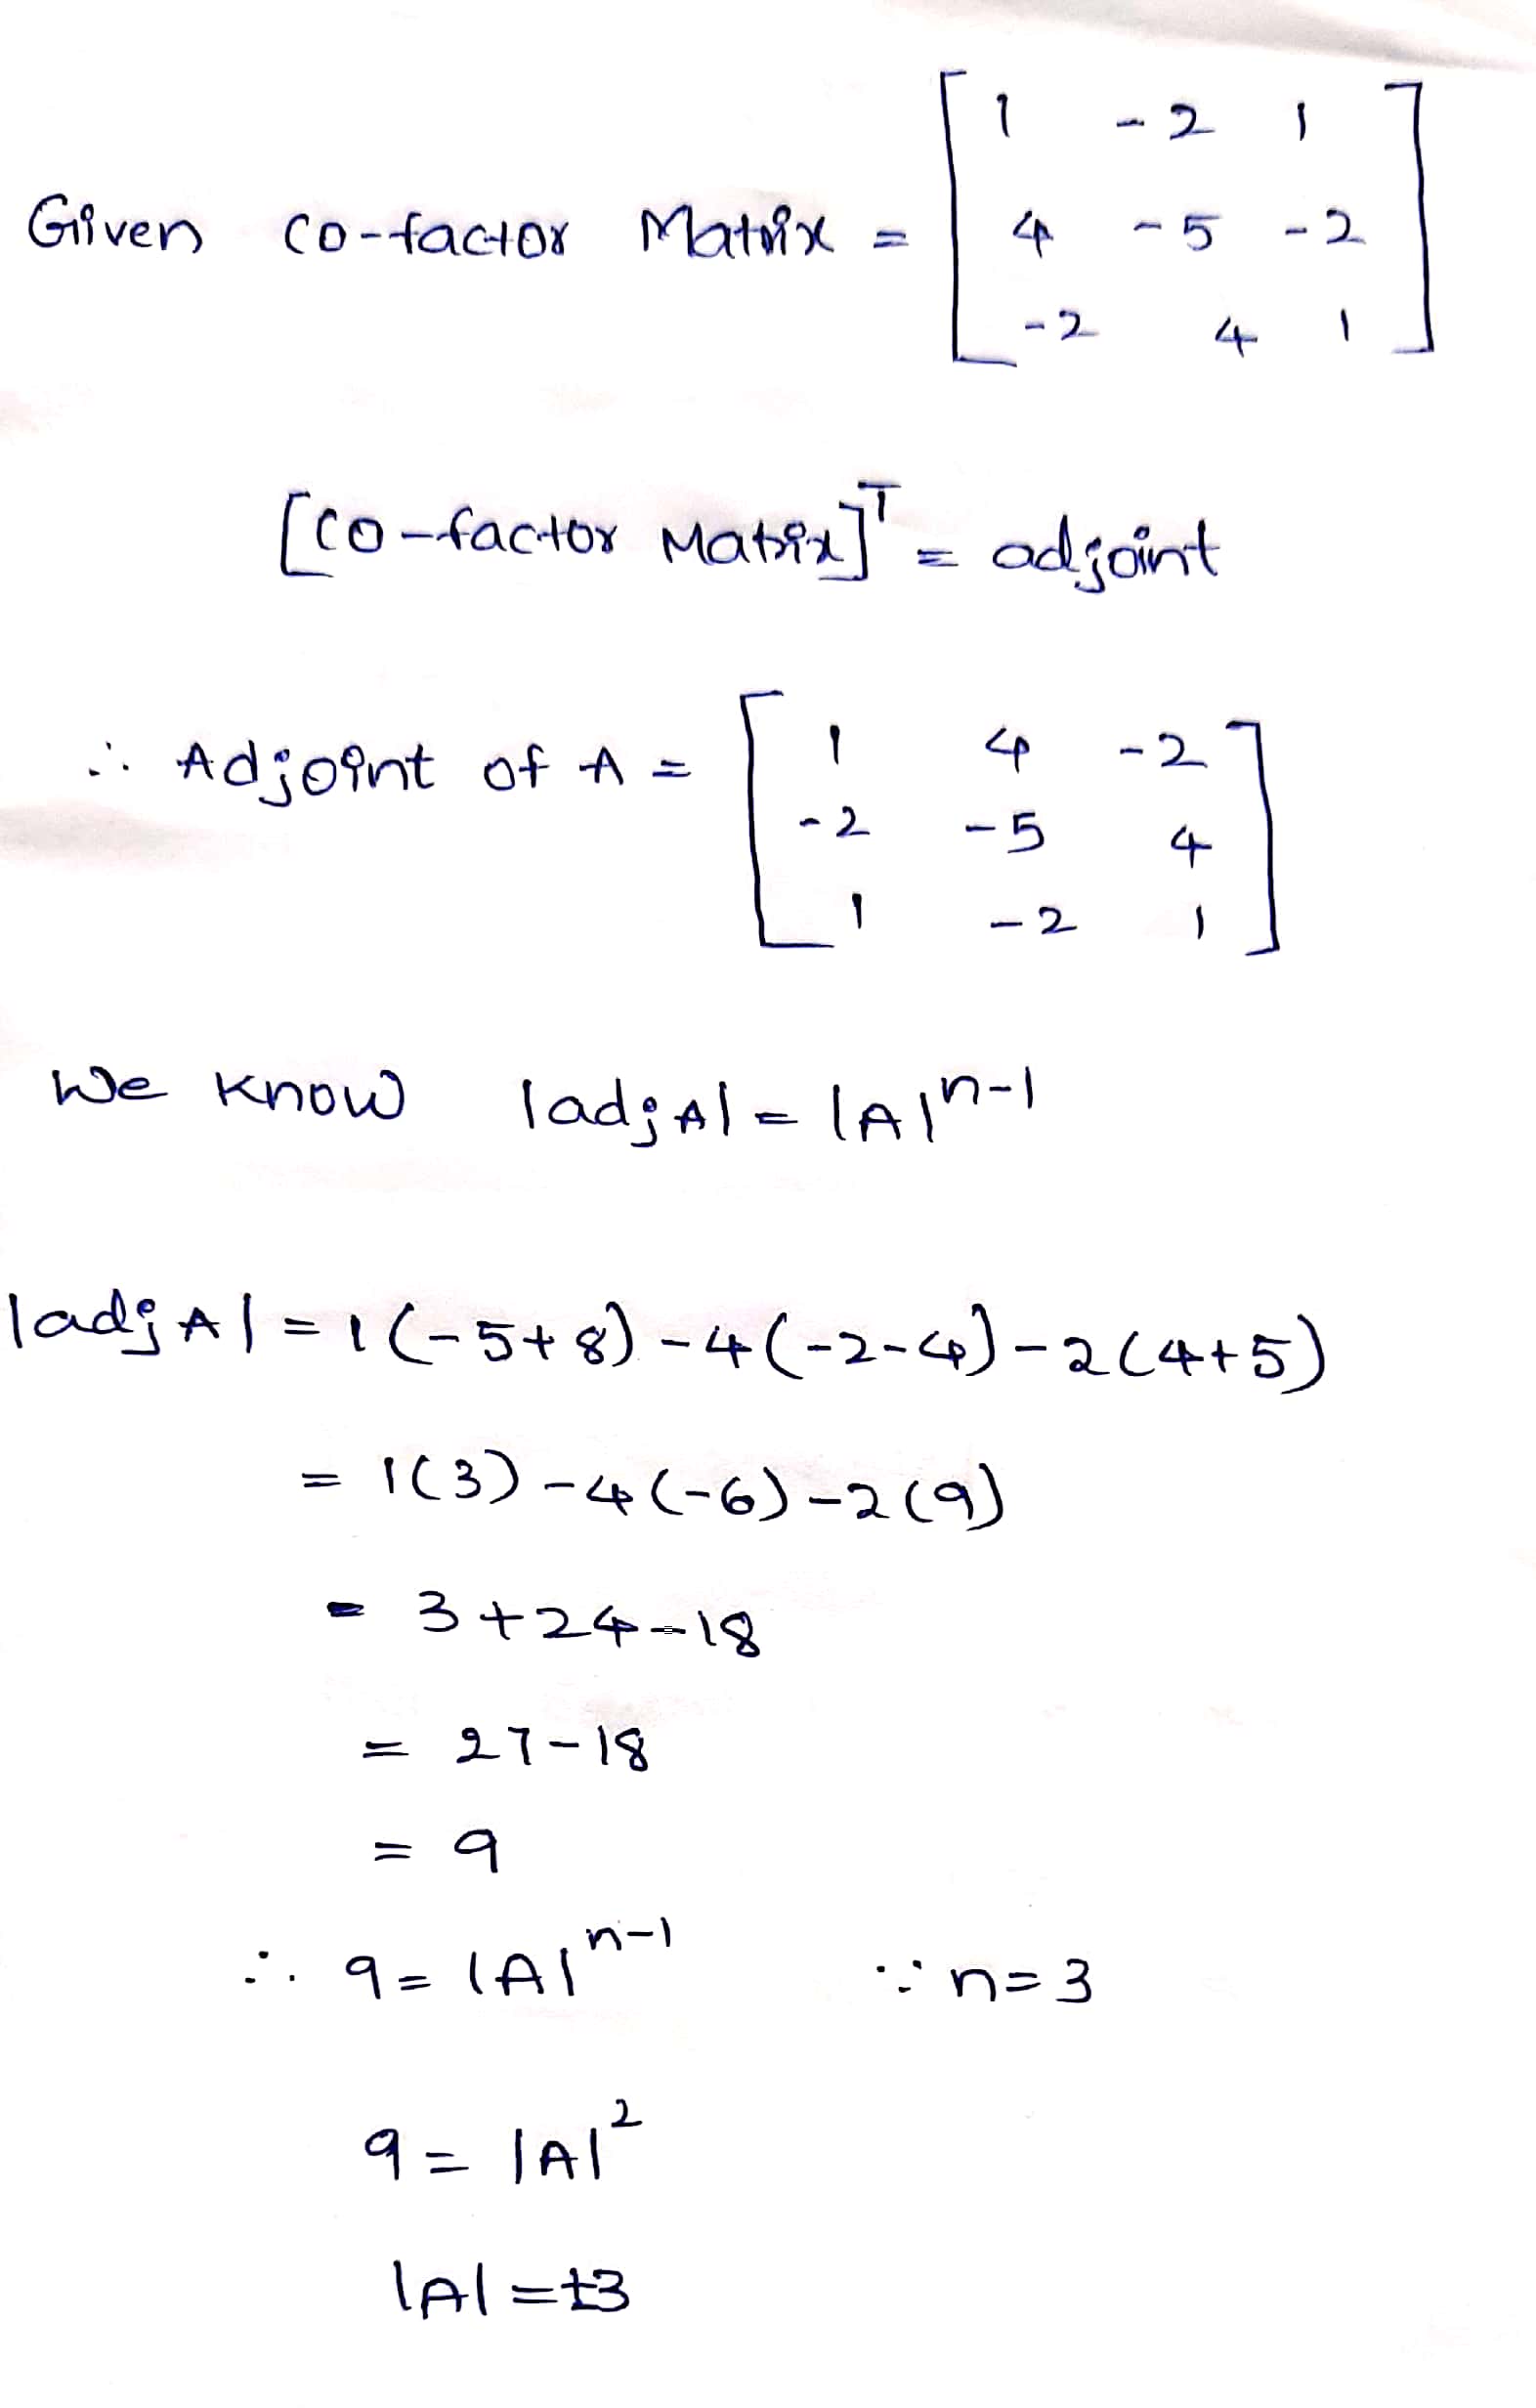 Given Co-factor Matrix = [ 1 -2 1
4 -5 -2
-2 4 1 ]
[Co-factor Matrix]ᵀ = adjoint
∴ Adjoint of A = [ 1 4 -2
-2 -5 4
1 -2 1 ]
We know |adj A| = |A|ⁿ⁻¹
|adj A| = 1(-5+8) -4(-2-4) -2(4+5)
= 1(3) -4(-6) -2(9)
= 3+24-18
= 27-18
= 9
∴ 9 = |A|ⁿ⁻¹ ∵ n=3
9 = |A|²
|A| = ±3